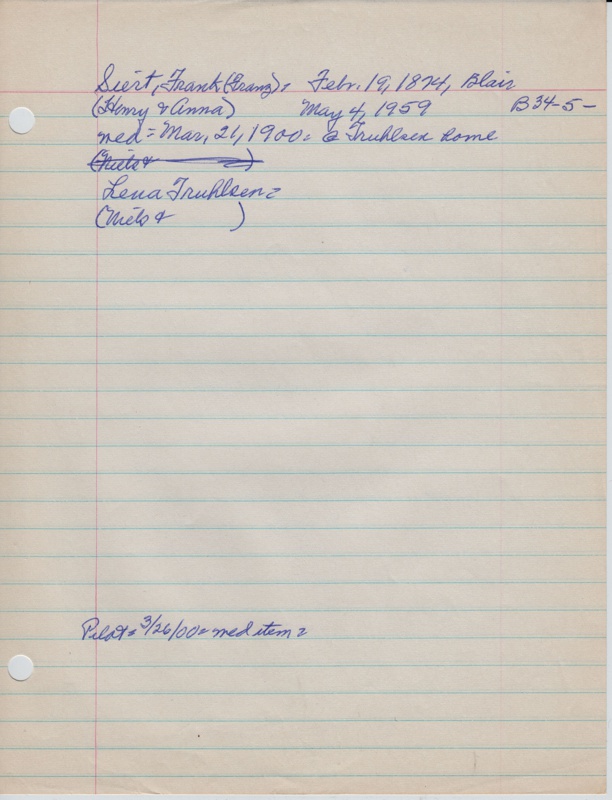 Siert, Frank (Franz), Febr. 19, 1874, Blair
(Henry & Anna) May 4, 1959 B34-5-
wed = Mar, 21, 1900 = @ Truhlsen home
(Niels & )
Lena Truhlsen =
(Niels & )
Pilot = 3/26/00 = wed item =